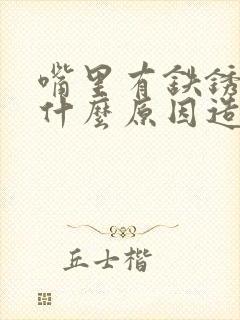 嘴里有鉄锈
什麼原因造
丘士楷